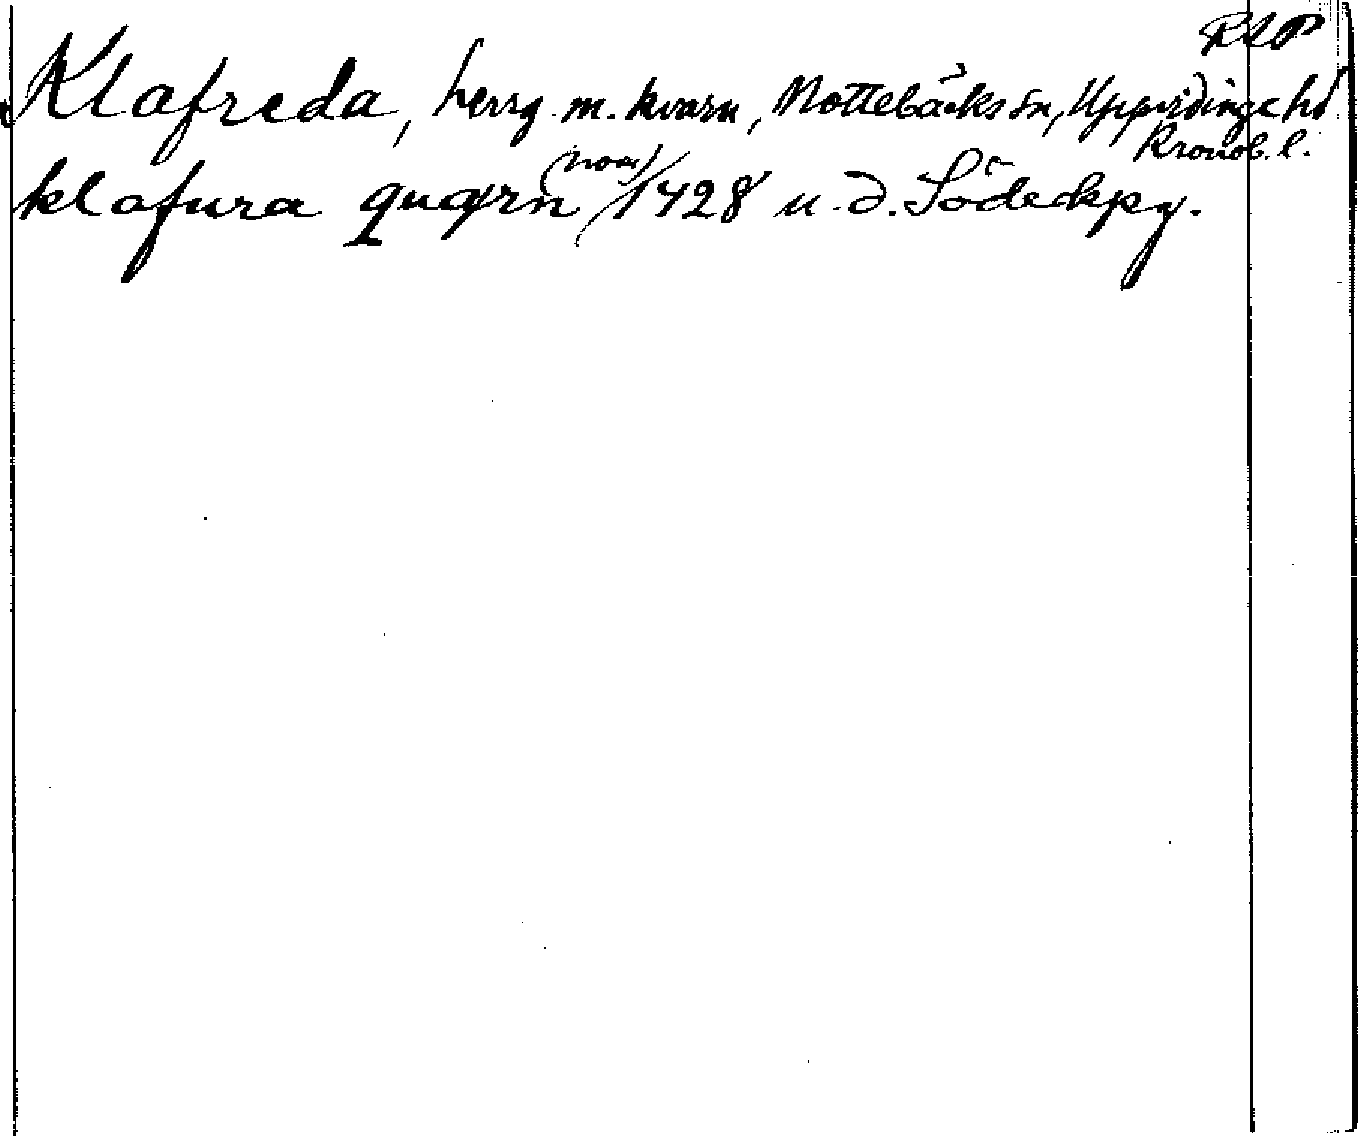 RAP
Klafreda, herrg. m. kvarn, Nottebäcks sn, Uppvidinge hd
Kronob. l.
klafura quærn (noa) 1428 u.d. Södeckpg.